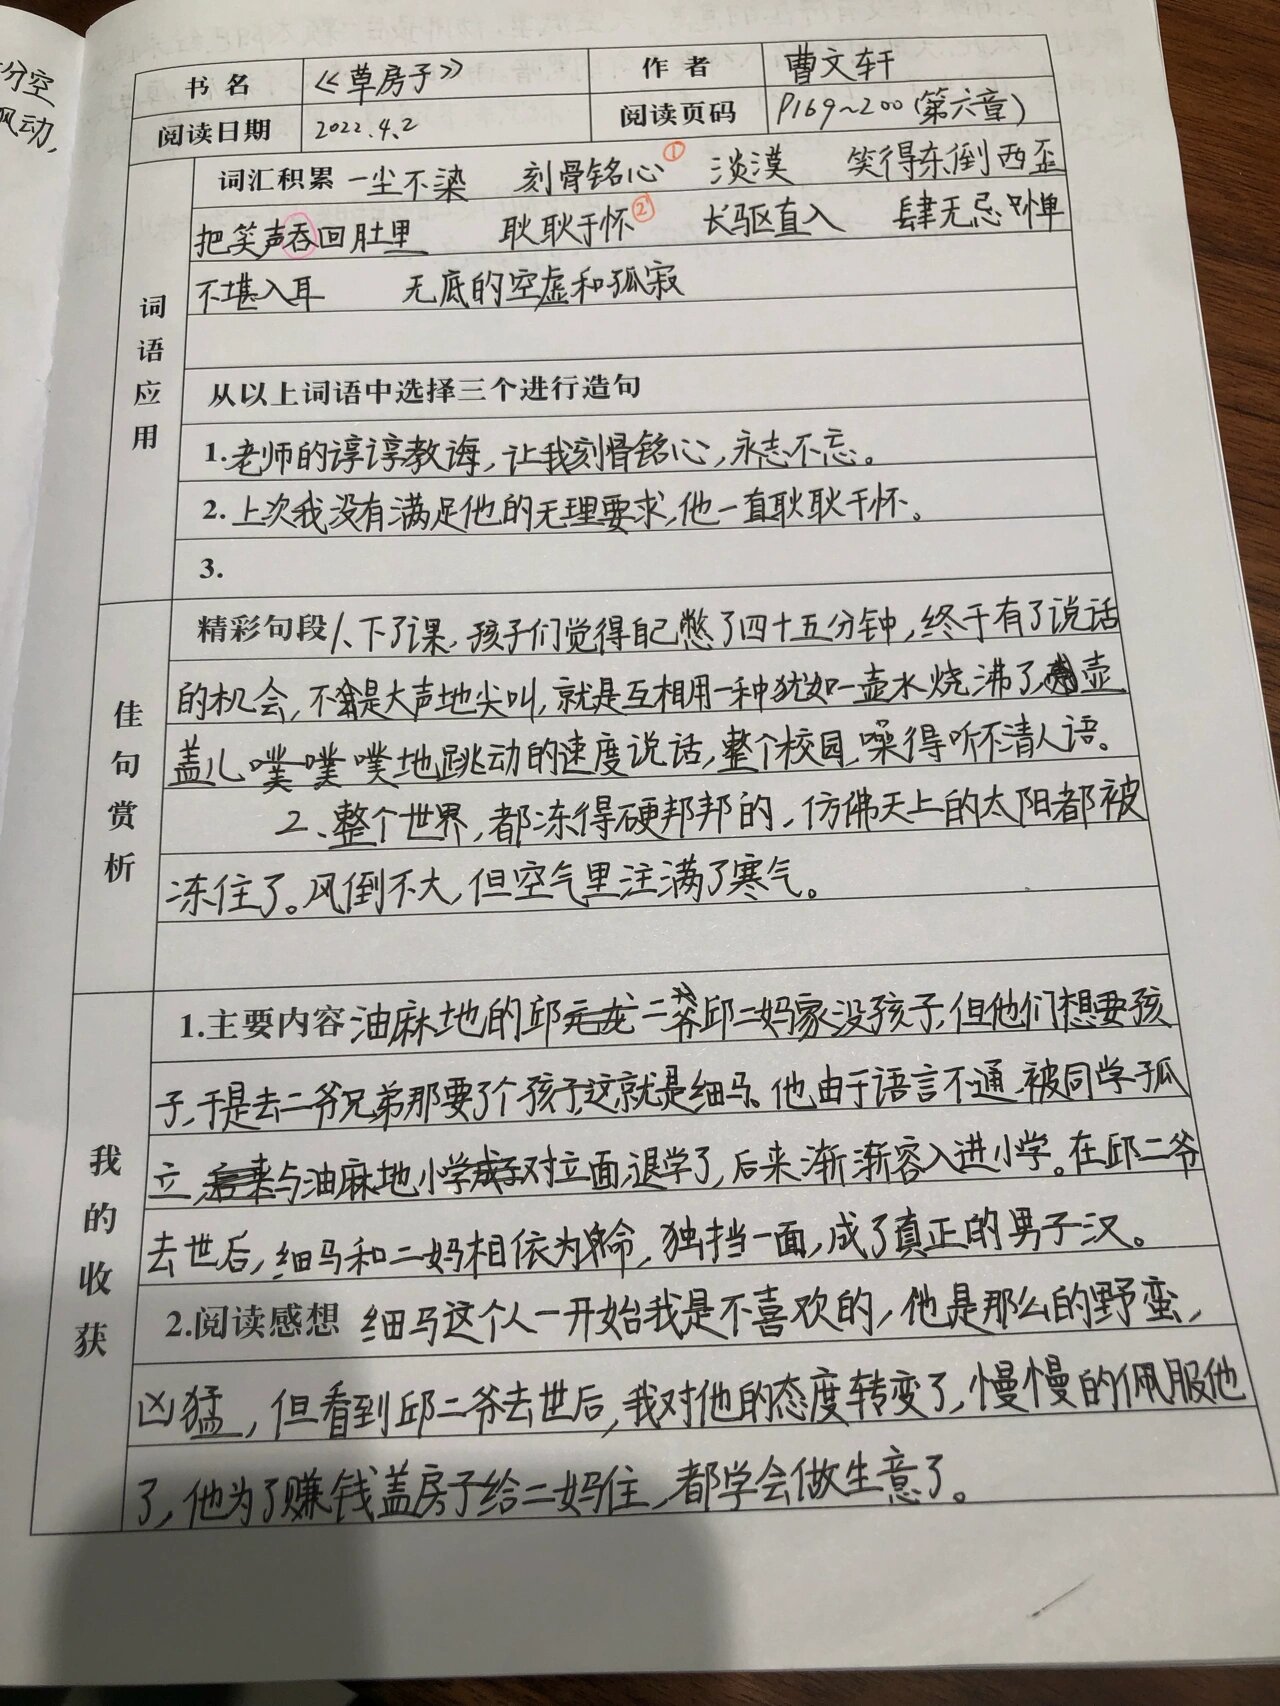 分空
风动,
书名 《草房子》 作者 曹文轩
阅读日期 2022.4.2 阅读页码 P169~200(第六章)
词语应用
词汇积累 一尘不染 刻骨铭心① 淡漠 笑得东倒西歪
把笑声吞回肚里 耿耿于怀② 长驱直入 肆无忌惮
不堪入耳 无底的空虚和孤寂
从以上词语中选择三个进行造句
1.老师的谆谆教诲,让我刻骨铭心,永志不忘。
2.上次我没有满足他的无理要求,他一直耿耿于怀。
3.
佳句赏析
精彩句段 1、下了课,孩子们觉得自己憋了四十五分钟,终于有了说话
的机会,不是大声地尖叫,就是互相用一种犹如一壶水烧沸了壶
盖儿噗噗噗地跳动的速度说话,整个校园,噪得听不清人语。
2、整个世界,都冻得硬邦邦的,仿佛天上的太阳都被
冻住了。风倒不大,但空气里注满了寒气。
我的收获
1.主要内容 油麻地的邱元龙二爷邱二妈家没孩子,但他们想要孩
子,于是去二爷兄弟那要了个孩子,这就是细马。他由于语言不通,被同学孤
立,后来与油麻地小学成了对立面,退学了,后来渐渐容入进小学。在邱二爷
去世后,细马和二妈相依为命,独挡一面,成了真正的男子汉。
2.阅读感想 细马这个人一开始我是不喜欢的,他是那么的野蛮,
凶猛,但看到邱二爷去世后,我对他的态度转变了,慢慢的佩服他
了,他为了赚钱盖房子给二妈住,都学会做生意了。